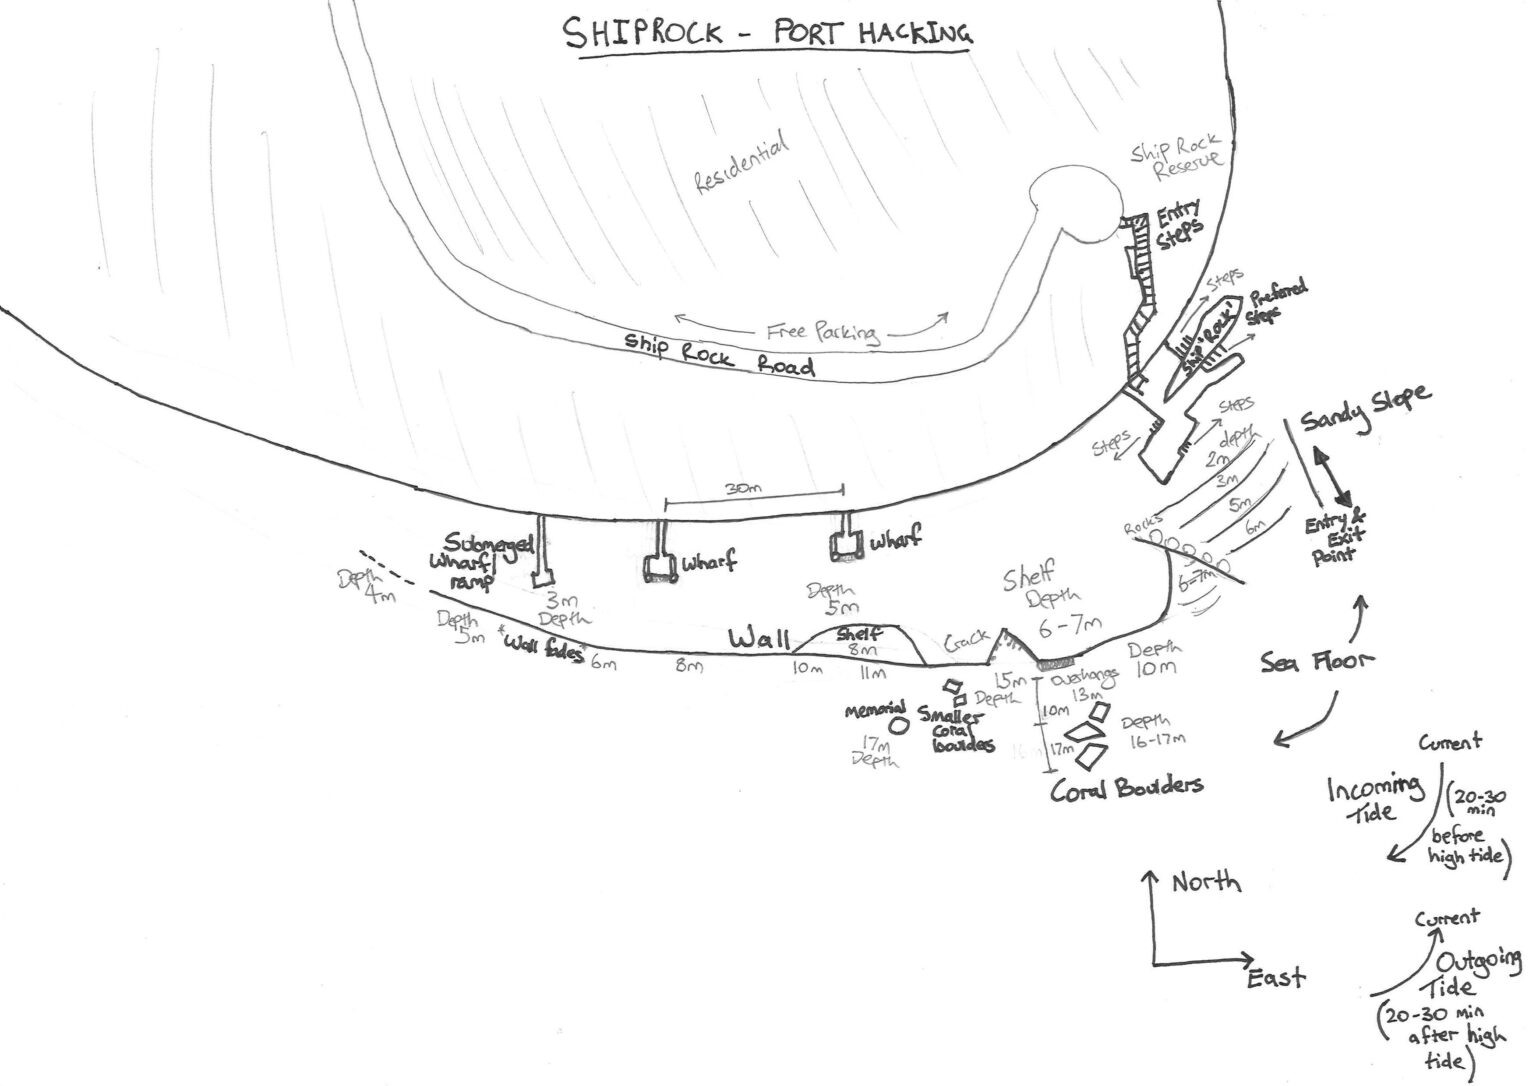 SHIPROCK - PORT HACKING
Residential
Ship Rock
Reserve
Entry
Steps
Steps
Prefared
Steps
Ship 'Rock'
Free Parking
Ship Rock Road
Sandy Slope
Steps
Steps
depth
2m
3m
5m
6m
Rocks
6-7m
Entry &
Exit
Point
30m
Submerged
Wharf/
ramp
Wharf
Wharf
Depth
4m
3m
Depth
Depth
5m
Shelf
Depth
6-7m
Depth
5m
*Wall fades*
6m
8m
Wall
10m
Shelf
8m
11m
Crack
15m
Depth
Overhangs
13m
Depth
10m
Sea Floor
Memorial
17m
Depth
Smaller
Coral
boulders
10m
16m
17m
Depth
16-17m
Coral Boulders
Current
Incoming
Tide
(20-30
min
before
high tide)
North
East
Current
Outgoing
Tide
(20-30 min
after high
tide)